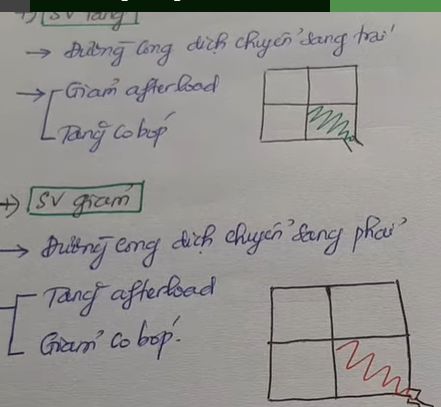 +) SV tăng
→ Đường cong dịch chuyển sang trái
→ Giảm afterload
Tăng co bóp
+) SV giảm
→ Đường cong dịch chuyển sang phải
Tăng afterload
Giảm co bóp.